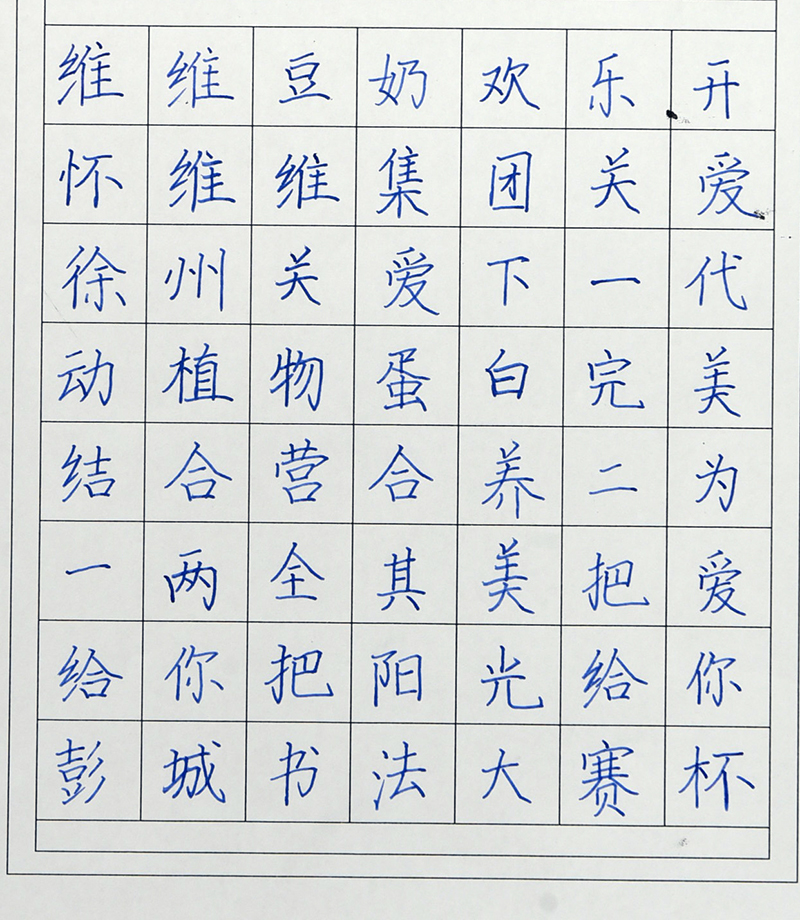 维维豆奶欢乐开
怀维维集团关爱
徐州关爱下一代
动植物蛋白完美
结合营合养二为
一两全其美把爱
给你把阳光给你
彭城书法大赛杯